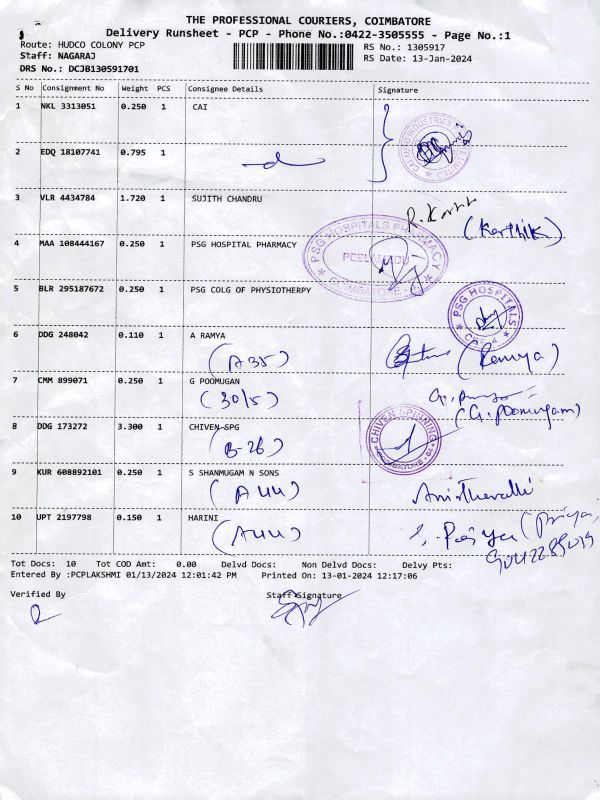 THE PROFESSIONAL COURIERS, COIMBATORE
Delivery Runsheet - PCP - Phone No.:0422-3505555 - Page No.:1
Route: HUDCO COLONY PCP
Staff: NAGARAJ
DRS No.: DCJB130591701
RS No.: 1305917
RS Date: 13-Jan-2024
S No Consignment No Weight PCS Consignee Details Signature
1 NKL 3313051 0.250 1 CAI
2 EDQ 18107741 0.795 1
3 VLR 4434784 1.720 1 SUJITH CHANDRU
(Karthik)
4 MAA 108444167 0.250 1 PSG HOSPITAL PHARMACY
PSG HOSPITALS PHARMACY
PEELAMEDU
COIMBATORE
5 BLR 295187672 0.250 1 PSG COLG OF PHYSIOTHERPY
PSG HOSPITALS
CBE-4
6 DDG 248042 0.110 1 A RAMYA
(A35) (Ramya)
7 CMM 899071 0.250 1 G POOMUGAN
(30/5) (G. Poomugam)
8 DDG 173272 3.300 1 CHIVEN SPG
(B-26)
CHIVEN SPINNING
COIMBATORE
9 KUR 608892101 0.250 1 S SHANMUGAM N SONS
(A44)
10 UPT 2197798 0.150 1 HARINI
(A44) Priya (Priya)
Tot Docs: 10 Tot COD Amt: 0.00 Delvd Docs: Non Delvd Docs: Delvy Pts:
Entered By :PCPLAKSHMI 01/13/2024 12:01:42 PM Printed On: 13-01-2024 12:17:06
Verified By Staff Signature